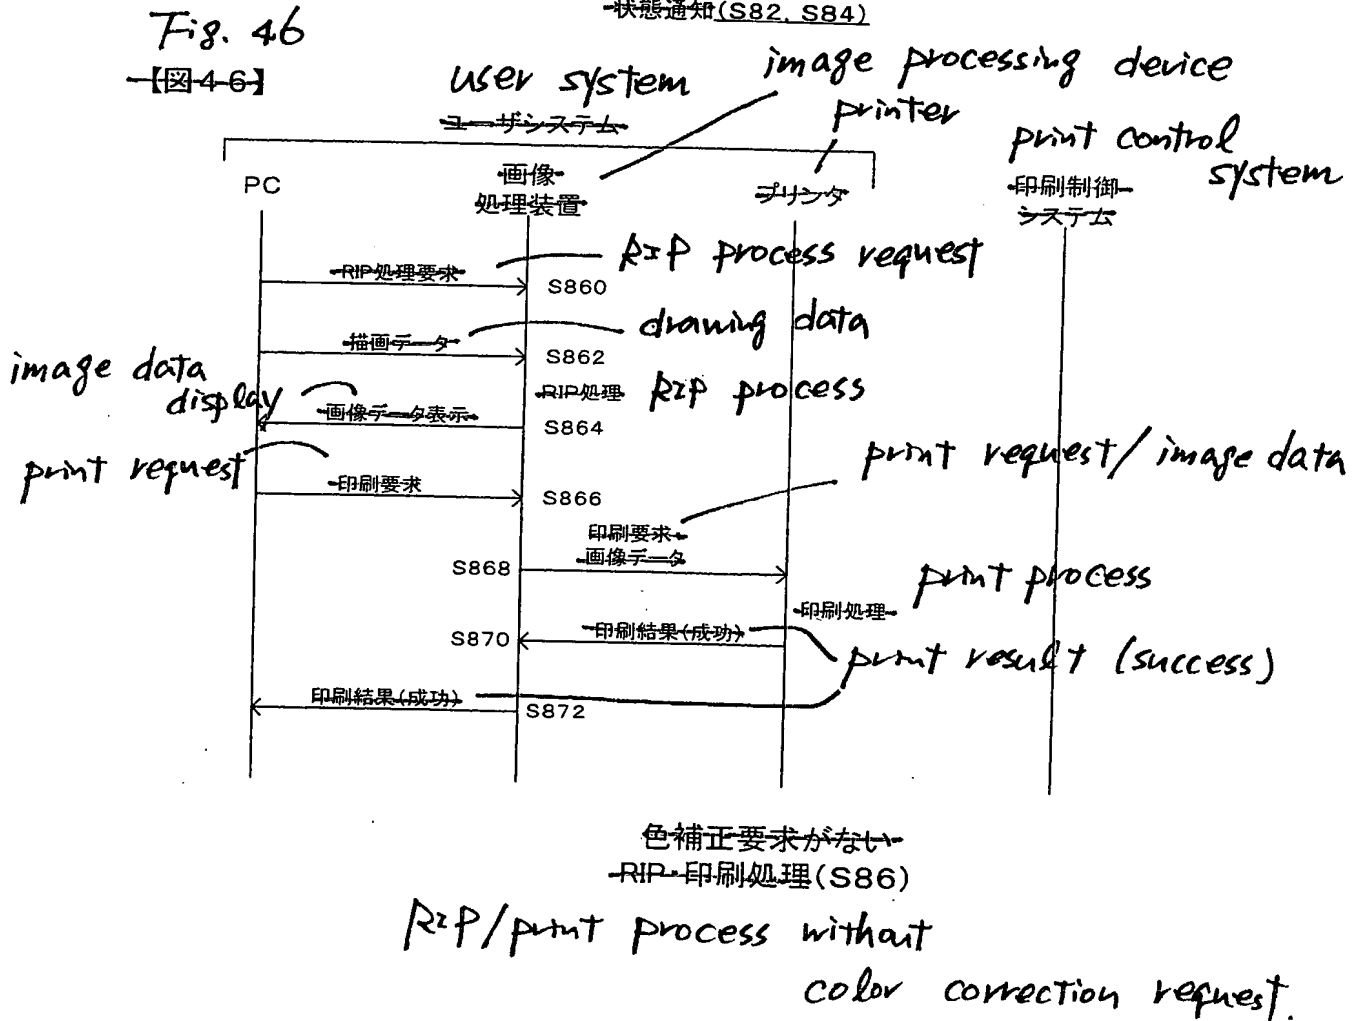 状態通知(S82, S84)
Fig. 46
【図46】
user system
image processing device
ユーザシステム
printer
print control
system
PC
画像
処理装置
プリンタ
印刷制御
システム
RIP処理要求
RIP process request
S860
描画データ
drawing data
S862
image data
display
RIP処理
RIP process
画像データ表示
S864
print request
print request/image data
印刷要求
S866
印刷要求
画像データ
S868
print process
印刷処理
印刷結果(成功)
S870
print result (success)
印刷結果(成功)
S872
色補正要求がない
RIP・印刷処理(S86)
RIP/print process without
color correction request.